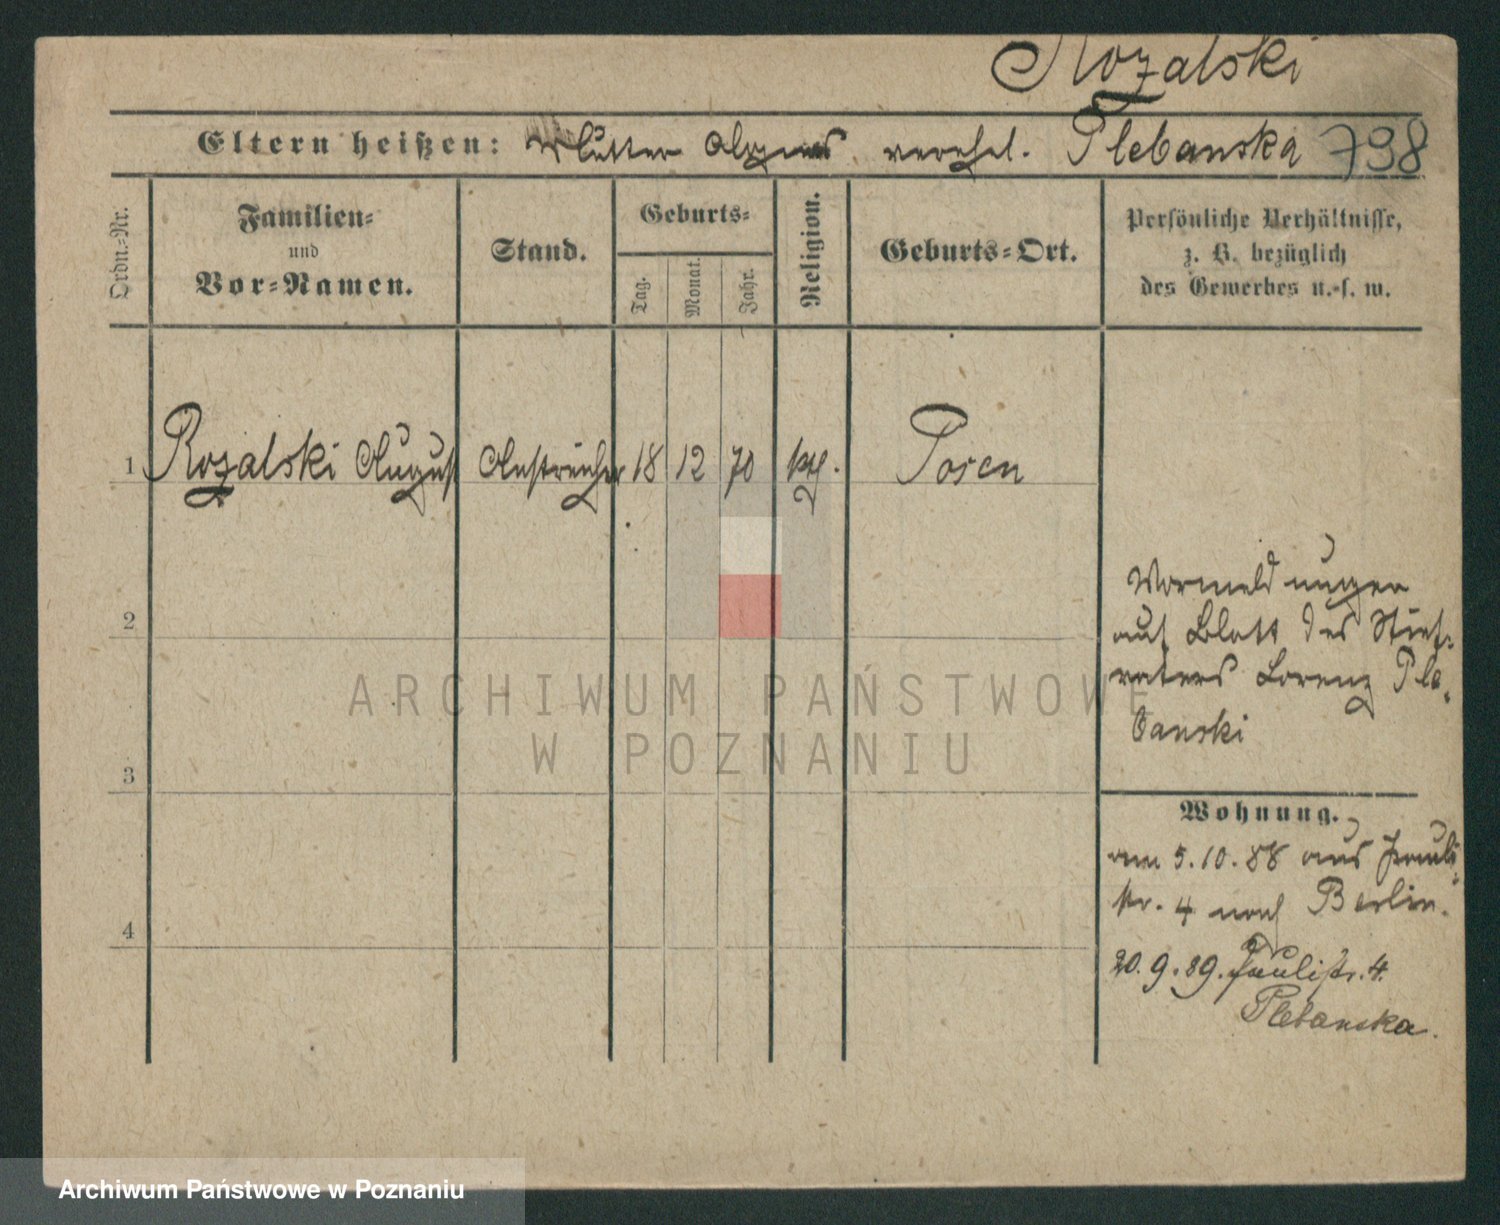 Rozalski
Eltern heißen: Mutter Agnes verehel. Plebanska 798
Ordn.-Nr.
Familien-
und
Vor-Namen.
Stand.
Geburts-
Tag.
Monat.
Jahr.
Religion.
Geburts-Ort.
Persönliche Verhältnisse,
z. B. bezüglich
des Gewerbes u. s. w.
1 Rozalski August Anstreicher 18 12 70 kth. Posen
2
3
4
Vormeldungen
auf Blatt des Stief-
vaters Lorenz Ple-
banski
Wohnung.
am 5.10.88 aus Pauli-
str. 4 nach Berlin.
20.9.89. Paulistr. 4.
Plebanska.
ARCHIWUM PAŃSTWOWE
W POZNANIU
Archiwum Państwowe w Poznaniu